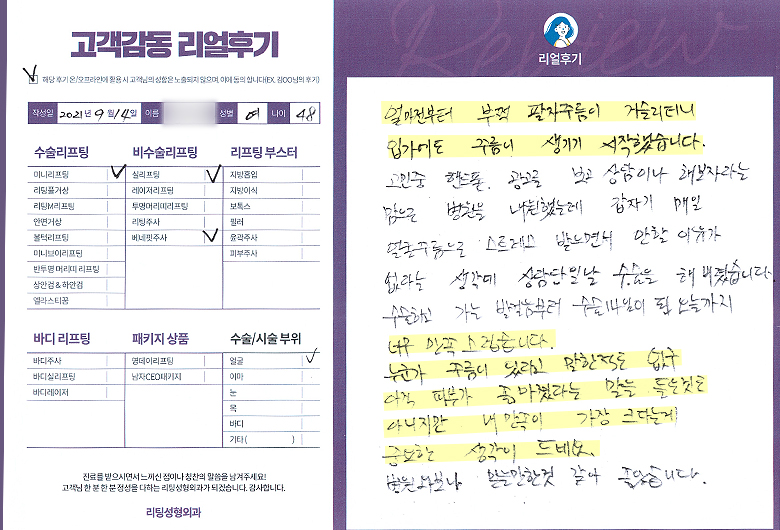 고객감동 리얼후기
해당 후기 온/오프라인에 활용 시 고객님의 성함은 노출되지 않으며, 이에 동의 합니다(EX. 김OO님의 후기)
작성일 2021년 9월 14일 이름 성별 여 나이 48
수술리프팅
미니리프팅
리팅풀거상
리팅M리프팅
안면거상
볼턱리프팅
미니브이리프팅
반투명 머리띠 리프팅
상안검 & 하안검
엘라스티꿈
비수술리프팅
실리프팅
레이저리프팅
투명머리띠리프팅
리팅주사
베네핏주사
리프팅 부스터
지방흡입
지방이식
보톡스
필러
윤곽주사
피부주사
바디 리프팅
바디주사
바디실리프팅
바디레이저
패키지 상품
명데이리프팅
남자CEO패키지
수술/시술 부위
얼굴
이마
눈
목
바디
기타 ( )
진료를 받으시면서 느끼신 점이나 칭찬의 말씀을 남겨주세요!
고객님 한 분 한 분 정성을 다하는 리팅성형외과가 되겠습니다. 감사합니다.
리팅성형외과
Review
리얼후기
얼마전부터 부쩍 팔자주름이 거슬리더니
입가에도 주름이 생기기 시작했습니다.
고민중 핸드폰 광고를 보고 상담이나 해보자라는
맘으로 병원을 내원했는데 갑자기 매일
얼굴주름으로 스트레스 받으면서 안할 이유가
없다는 생각에 상담당일날 수술을 해버렸습니다.
수술하고 가는 발걸음부터 수술 된 오늘까지
너무 만족스럽습니다.
누군가 주름이 있다고 말한적도 없구
아직 피부가 좋아졌다는 말을 들은것도
아니지만 내 만족이 가장 크다는게
중요한 생각이 드네요.
병원 믿을만한것 같아 좋았습니다.